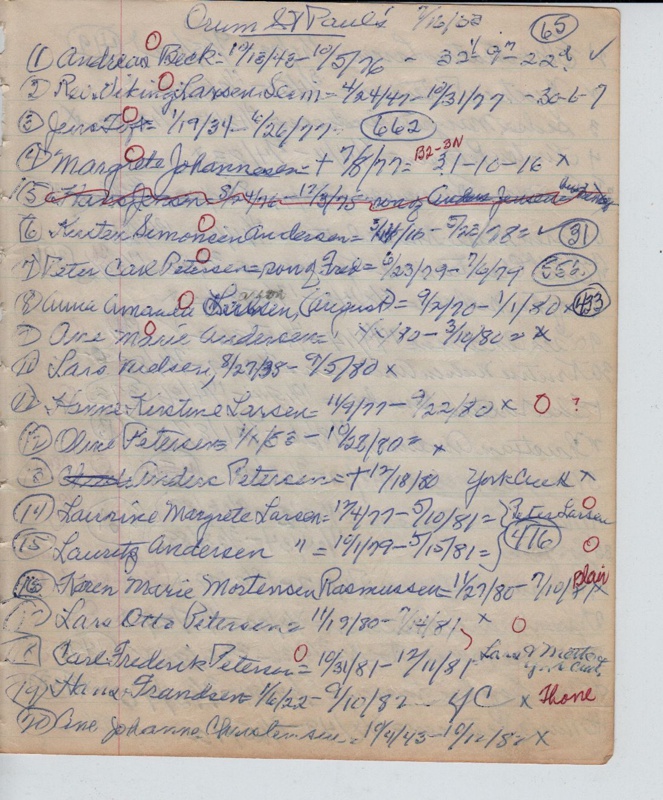 Orum St Pauls 7/16/58 65
1 Andreas Beck = 12/13/43 - 10/5/76 - ✓
2 Larsen = 4/24/47 - 10/31/77 - 30-6-7
3 Jens = 1/19/34 - 6/26/77 - 662
4 Margrete Johannesen = + 7/8/77 = B2-3N 31-10-16 x
5 Hans Jensen = 8/24/76 - 12/3/75 - son of Jensen
6 Kirsten Simonsen Andersen = 5/22/78 = ✓ 31
7 Peter Carl Petersen = son of Fred = 6/23/79 - 7/6/79 556
8 Anna Amanda Larsen, (August) = 9/2/70 - 1/1/80 x 433
9 Ane Marie Andersen = 3/10/80 = x
10 Lars Nielsen, 8/27/38 - 9/5/80 x
11 Hanne Kirstine Larsen = 11/9/77 - 9/22/80 x O ?
12 Oline Petersen = - 10/28/80 = x
13 Anders Petersen = + 12/18/80 York Creek x
14 Laurine Margrete Larsen = 12/4/77 - 5/10/81 = Peter Larsen
15 Lauritz Andersen " = 10/1/79 - 5/15/81 = 476
16 Karen Marie Mortensen Rasmussen = 11/27/80 - Blair x
17 Lars Otto Petersen = 11/19/80 - 7/4/81 x O
18 Carl Frederik Petersen = 10/31/81 - 12/11/81 - York Creek
19 Hans Frandsen = 1/6/22 - 9/10/82 - YC x Thone
20 Ane Johanne Christensen = 10/4/43 - 10/12/82 x